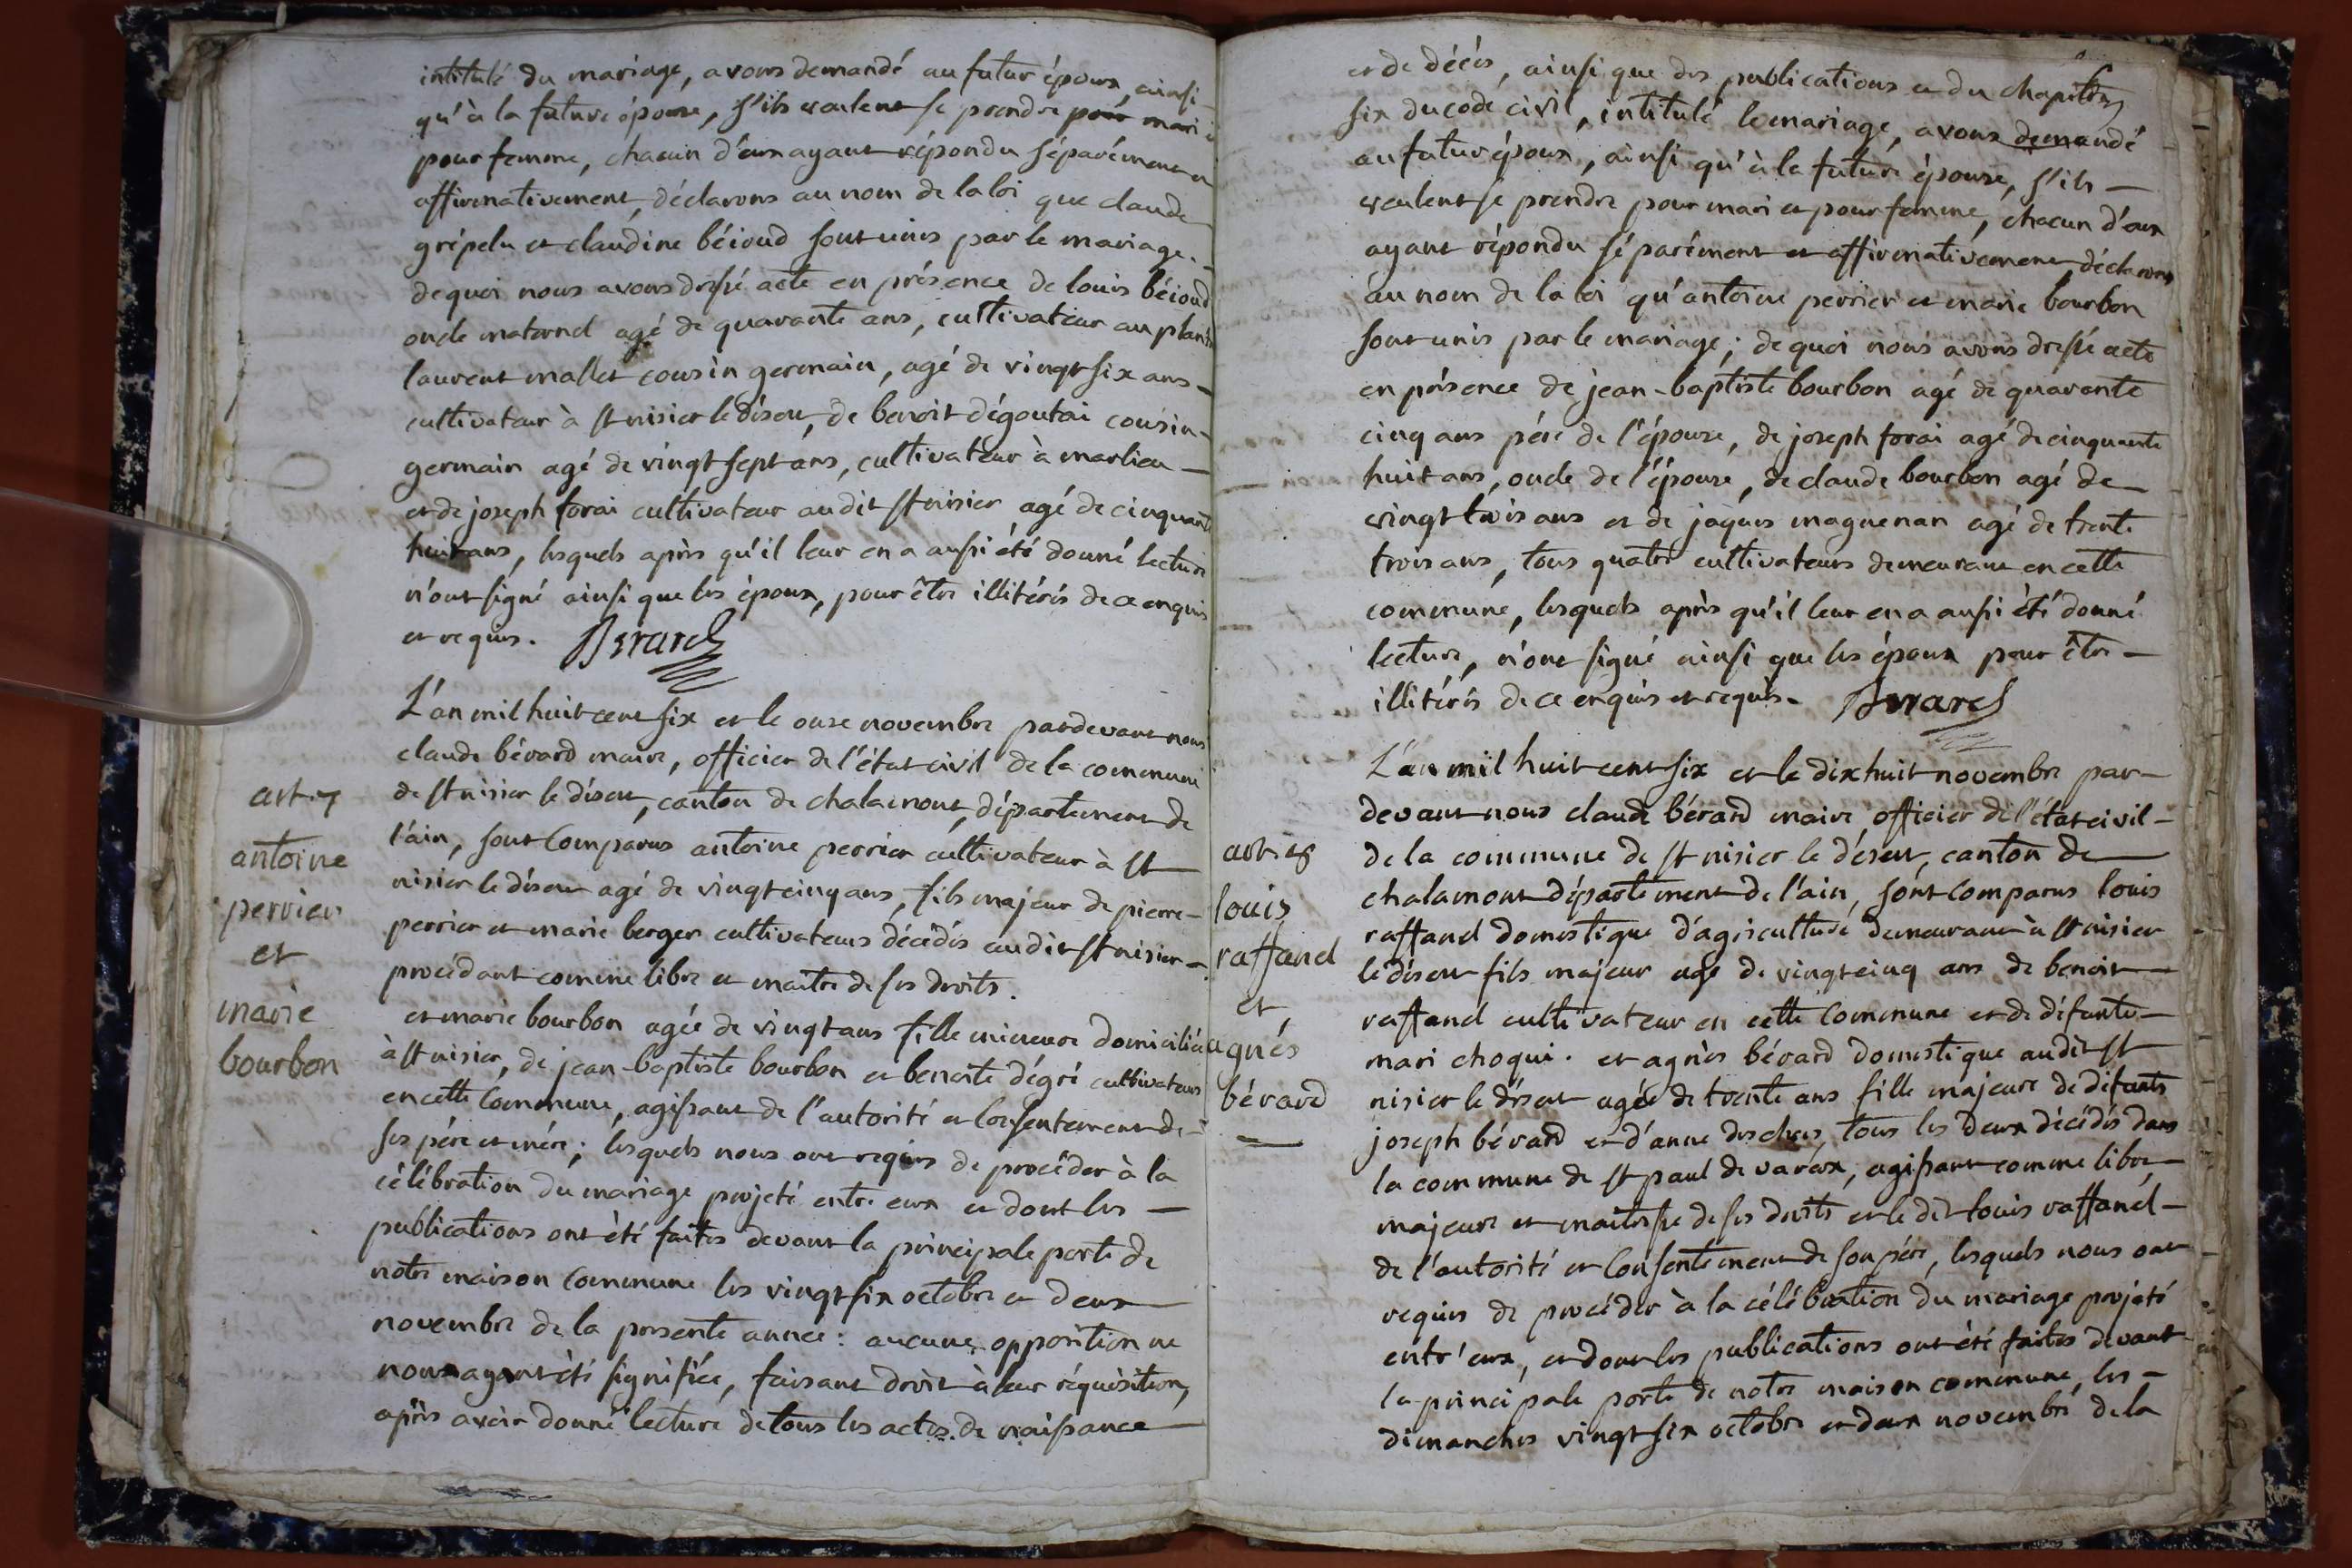 intitulé du mariage, avons demandé au futur époux, ainsi
qu'à la future épouse, s'ils veulent se prendre pour mari et
pour femme, chacun d'eux ayant répondu séparément et
affirmativement, déclarons au nom de la loi que claude
grépelu et claudine béioud sont unis par le mariage.
de quoi nous avons dressé acte en présence de louis béioud
oncle maternel agé de quarante ans, cultivateur au plantai
laurent mallet cousin germain, agé de vingt six ans
cultivateur à st nisier le désert, de benoit dégoutai cousin
germain agé de vingt sept ans, cultivateur à marlieu
et de joseph forai cultivateur audit st nisier agé de cinquante
huit ans, lesquels après qu'il leur en a aussi été donné lecture
n'ont signé ainsi que les époux, pour être illitérés de ce enquis
et requis. Berard
L'an mil huit cent six et le onze novembre pardevant nous
claude bérard maire, officier de l'état civil de la commune
de st nisier le désert, canton de chalamont, département de
l'ain, sont comparus antoine perrier cultivateur à st
nisier le désert agé de vingt cinq ans, fils majeur de pierre
perrier et marie berger cultivateurs décédés audit st nisier
procédant comme libre et maitre de ses droits.
et marie bourbon agée de vingt ans fille mineure domiciliée
à st nisier, de jean-baptiste bourbon et benoite dégri cultivateurs
en cette commune, agissant de l'autorité et consentement de
ses père et mère; lesquels nous ont requis de procéder à la
célébration du mariage projeté entre eux et dont les
publications ont été faites devant la principale porte de
notre maison commune les vingt six octobre et deux
novembre de la présente année: aucune opposition ne
nous ayant été signifiée, faisant droit à leur réquisition,
après avoir donné lecture de tous les actes de naissance
art. 7
antoine
perrier
et
marie
bourbon
et de décès, ainsi que des publications et du chapitre
six du code civil, intitulé le mariage, avons demandé
au futur époux, ainsi qu'à la future épouse, s'ils
veulent se prendre pour mari et pour femme, chacun d'eux
ayant répondu séparément et affirmativement, déclarons
au nom de la loi qu'antoine perrier et marie bourbon
sont unis par le mariage; de quoi nous avons dressé acte
en présence de jean-baptiste bourbon agé de quarante
cinq ans père de l'épouse, de joseph forai agé de cinquante
huit ans, oncle de l'épouse, de claude bourbon agé de
vingt trois ans et de jaques maguenan agé de trente
trois ans, tous quatre cultivateurs demeurant en cette
commune, lesquels après qu'il leur en a aussi été donné
lecture, n'ont signé ainsi que les époux pour être
illitérés de ce enquis et requis. Berard
L'an mil huit cent six et le dix huit novembre par-
devant nous claude bérard maire, officier de l'état civil
de la commune de st nisier le désert, canton de
chalamont département de l'ain, sont comparus louis
raffand domestique d'agriculture demeurant à st nisier
le désert fils majeur agé de vingt cinq ans de benoit
raffand cultivateur en cette commune et de défunte
mari choqui. et agnès bérard domestique audit st
nisier le désert agée de trente ans fille majeure de défunts
joseph bérard et d'anne deschers, tous les deux décédés dans
la commune de st paul de varax, agissant comme libre
majeure et maitresse de ses droits et le dit louis raffand
de l'autorité et consentement de son père, lesquels nous ont
requis de procéder à la célébration du mariage projeté
entr'eux, et dont les publications ont été faites devant
la principale porte de notre maison commune, les
dimanches vingt six octobre et deux novembre de la
art. 8
louis
raffand
et
agnés
bérard